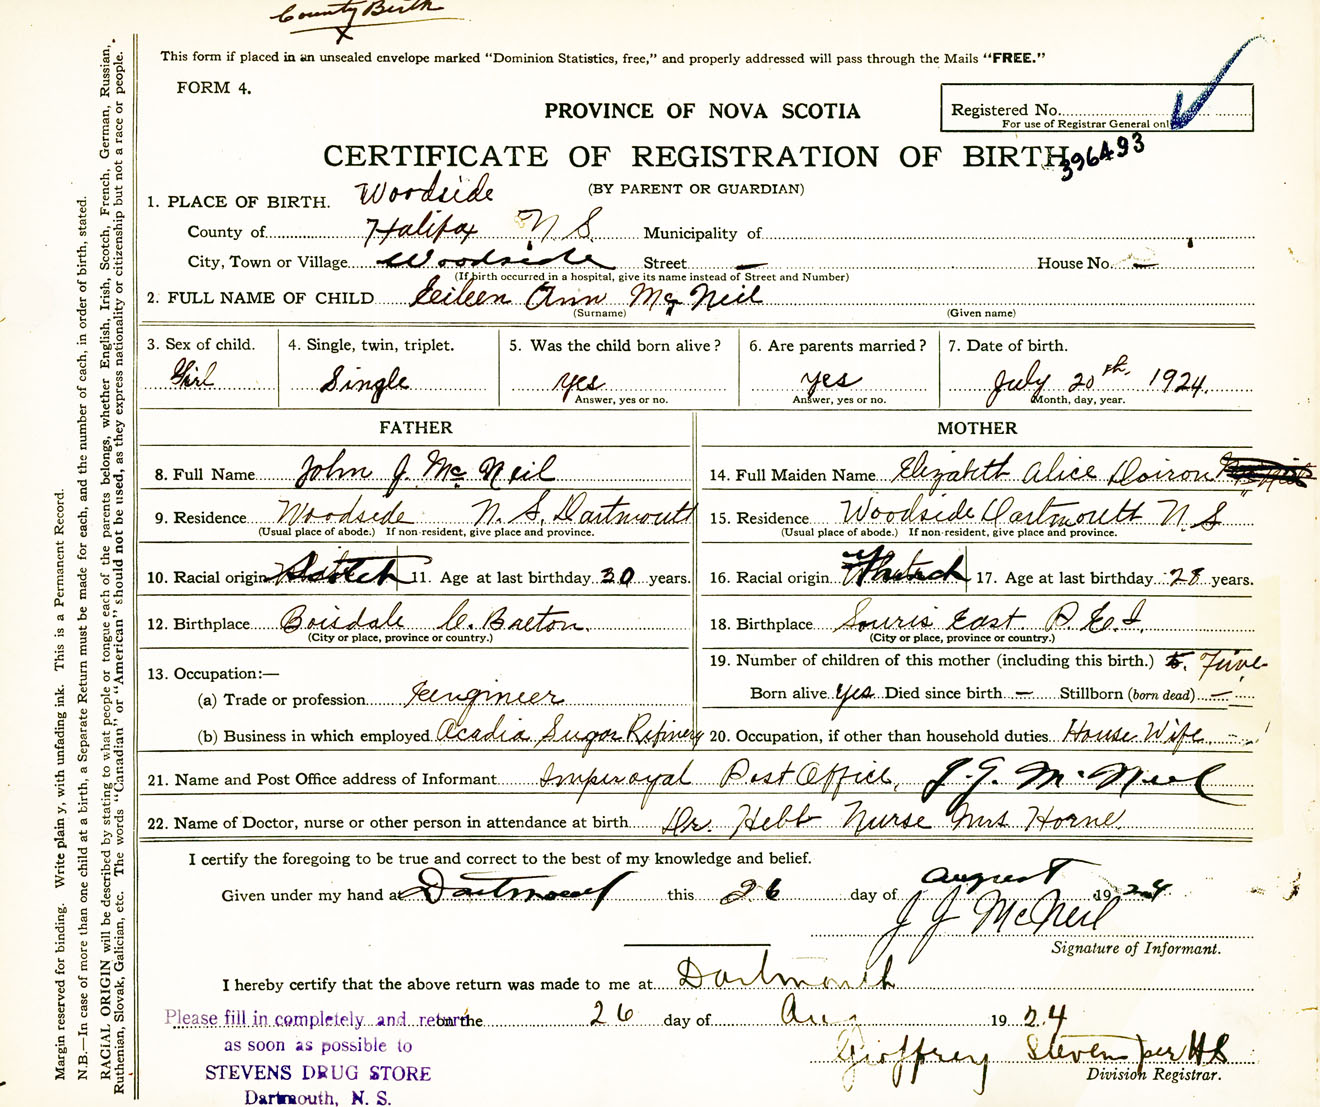 County Birth
X
This form if placed in an unsealed envelope marked "Dominion Statistics, free," and properly addressed will pass through the Mails "FREE."
FORM 4.
PROVINCE OF NOVA SCOTIA
Registered No.
For use of Registrar General only
396493
CERTIFICATE OF REGISTRATION OF BIRTH
(BY PARENT OR GUARDIAN)
1. PLACE OF BIRTH. Woodside
County of Halifax N S. Municipality of
City, Town or Village Woodside Street — House No. —
(If birth occurred in a hospital, give its name instead of Street and Number)
2. FULL NAME OF CHILD Eileen Ann Mc Neil
(Surname) (Given name)
3. Sex of child. 4. Single, twin, triplet. 5. Was the child born alive? 6. Are parents married? 7. Date of birth.
Girl Single yes yes July 20th 1924.
Answer, yes or no. Answer, yes or no. Month, day, year.
FATHER MOTHER
8. Full Name John J. Mc Neil 14. Full Maiden Name Elizabeth Alice Doiron
9. Residence Woodside N. S. Dartmouth 15. Residence Woodside Dartmouth N S
(Usual place of abode.) If non-resident, give place and province. (Usual place of abode.) If non-resident, give place and province.
10. Racial origin Scotch 11. Age at last birthday 30 years. 16. Racial origin 17. Age at last birthday 28 years.
12. Birthplace Boisdale C. Breton. 18. Birthplace Souris East P. E. I.
(City or place, province or country.) (City or place, province or country.)
13. Occupation:— 19. Number of children of this mother (including this birth.) 5. Five
(a) Trade or profession Engineer Born alive yes Died since birth — Stillborn (born dead) —
(b) Business in which employed Acadia Sugar Refinery 20. Occupation, if other than household duties House Wife
21. Name and Post Office address of Informant Imperoyal Post Office, J. J. McNeil
22. Name of Doctor, nurse or other person in attendance at birth Dr. Hebb Nurse Mrs Horne
I certify the foregoing to be true and correct to the best of my knowledge and belief.
Given under my hand at Dartmouth this 26 day of August 1924
J J McNeil
Signature of Informant.
I hereby certify that the above return was made to me at Dartmouth
on the 26 day of Aug 1924
Geoffrey Stevens per HS
Division Registrar.
Please fill in completely and return
as soon as possible to
STEVENS DRUG STORE
Dartmouth, N. S.
Margin reserved for binding. Write plainly, with unfading ink. This is a Permanent Record.
N.B.—In case of more than one child at a birth, a Separate Return must be made for each, and the number of each, in order of birth, stated.
RACIAL ORIGIN will be described by stating to what people or tongue each of the parents belongs, whether English, Irish, Scotch, French, German, Russian,
Ruthenian, Slovak, Galician, etc. The words "Canadian" or "American" should not be used, as they express nationality or citizenship but not a race or people.